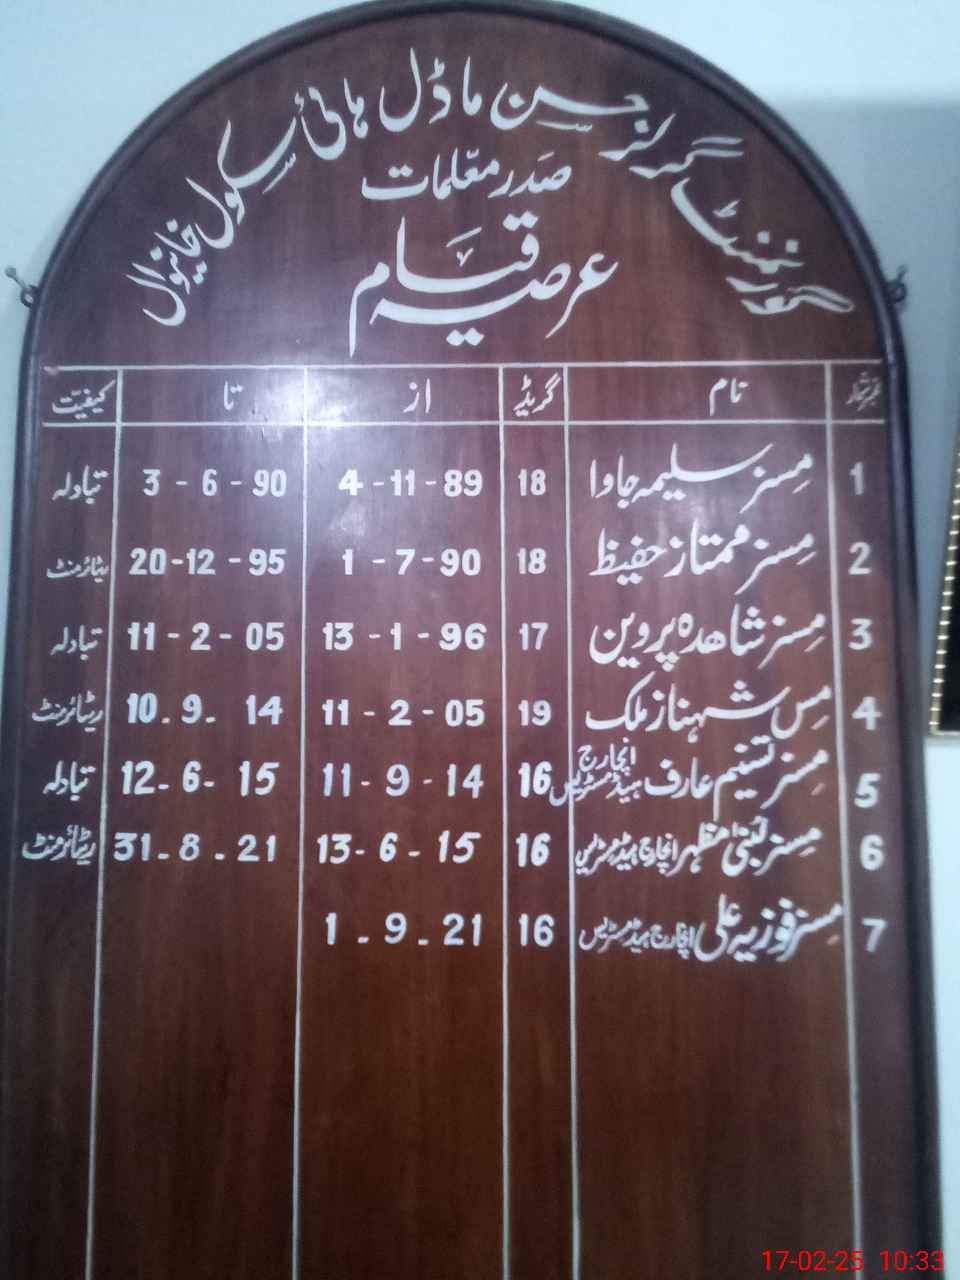 گورنمنٹ گرلز حسن ماڈل ہائی سکول خانیوال
صدر معلمات
عرصہ قیام
نمبر شمار نام گریڈ از تا کیفیت
1 مسز سلیمہ جاوا 18 4-11-89 3-6-90 تبادلہ
2 مسز ممتاز حفیظ 18 1-7-90 20-12-95 ریٹائرمنٹ
3 مسز شاھدہ پروین 17 13-1-96 11-2-05 تبادلہ
4 مس شہناز ملک 19 11-2-05 10.9.14 ریٹائرمنٹ
5 مسز تسنیم عارف انچارج ہیڈمسٹریس 16 11-9-14 12-6-15 تبادلہ
6 مسز لبنیٰ مظہر انچارج ہیڈمسٹریس 16 13-6-15 31.8.21 ریٹائرمنٹ
7 مسز فوزیہ علی انچارج ہیڈمسٹریس 16 1.9.21
17-02-25 10:33